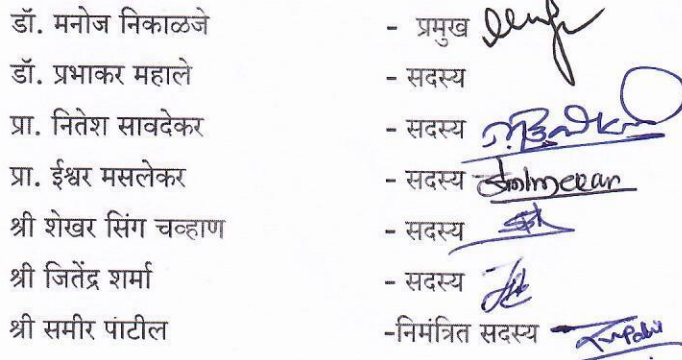 डॉ. मनोज निकाळजे - प्रमुख
डॉ. प्रभाकर महाले - सदस्य
प्रा. नितेश सावदेकर - सदस्य
प्रा. ईश्वर मसलेकर - सदस्य
श्री शेखर सिंग चव्हाण - सदस्य
श्री जितेंद्र शर्मा - सदस्य
श्री समीर पाटील -निमंत्रित सदस्य